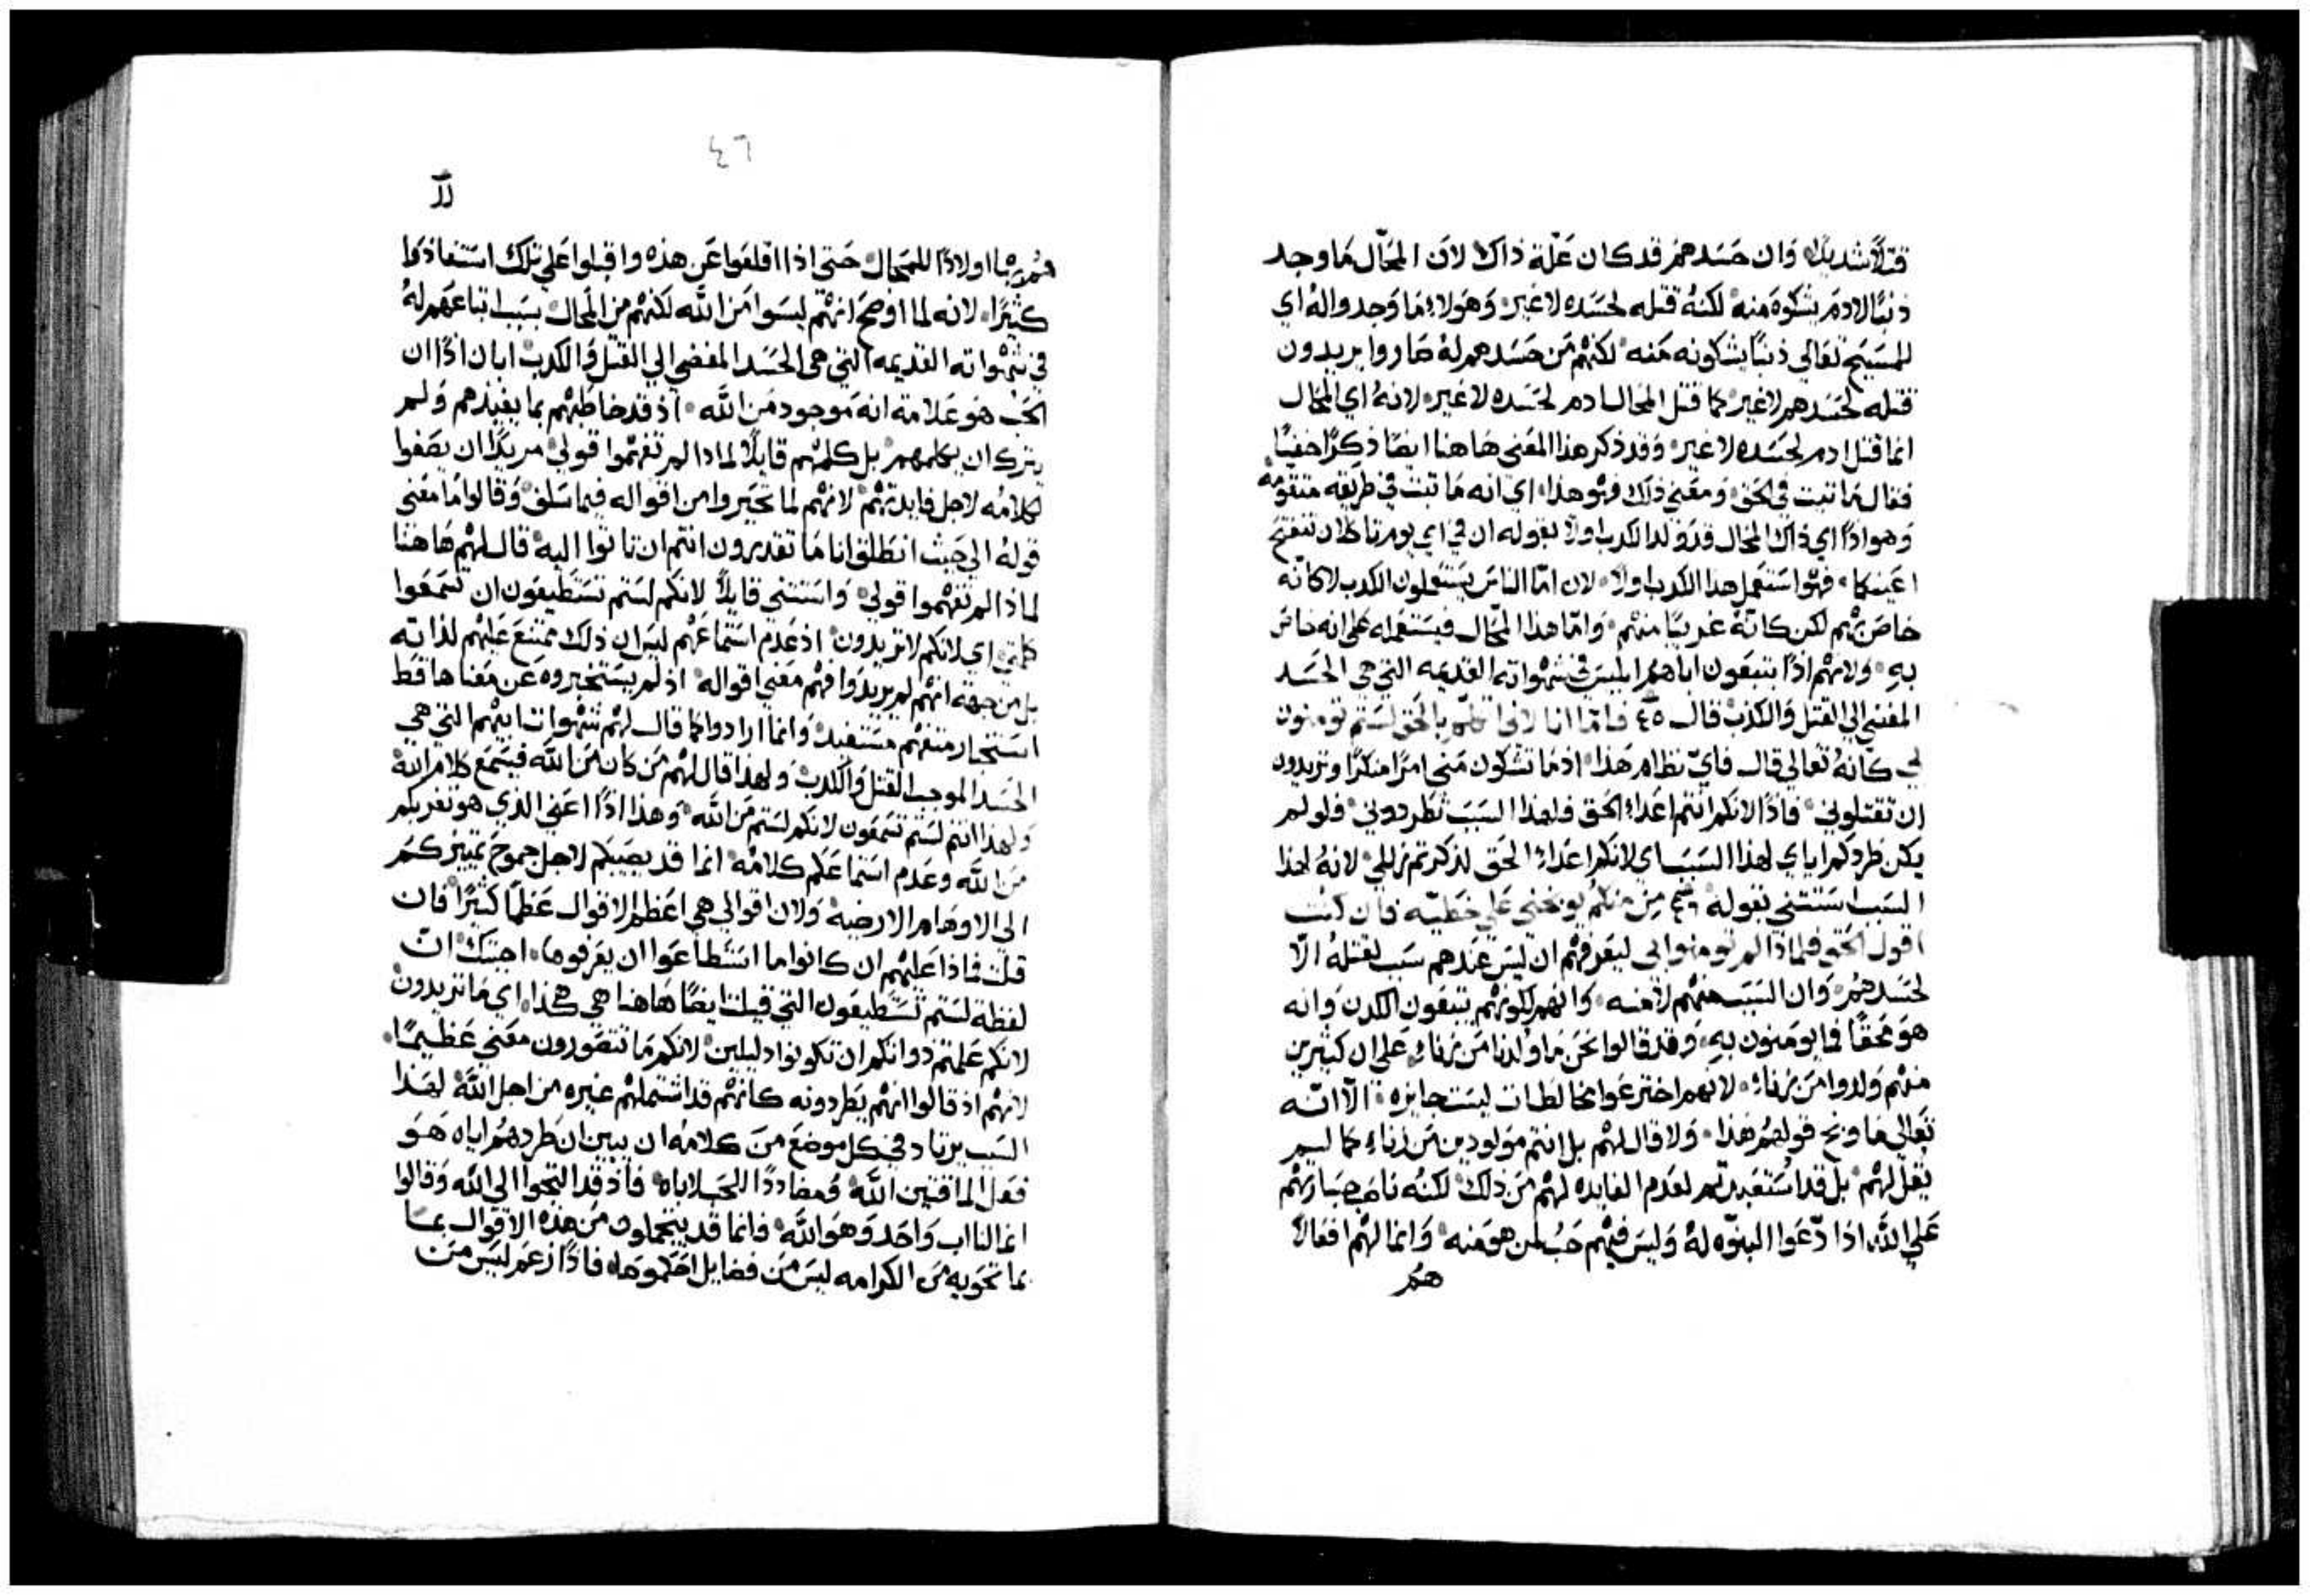 قتلاً شديدًا وان حسدهم قد كان علة ذاك لان المحال ما وجد
ذنبًا لادم يشكوه منه لكنه قتله لحسده لا غير وهولاء ما وجدوا له اي
للمسيح تعالي ذنبًا يشكونه منه لكنهم من حسدهم له صاروا يريدون
قتله لحسدهم لا غير كما قتل المحال ادم لحسده لا غير لانه اي المحال
انما قتل ادم لحسده لا غير وقد ذكر هذا المعني هاهنا ايضًا ذكرًا خفيًا
فقال ما ثبت في الحق ومعني ذلك فهو هذا اي انه ما ثبت في طريقه متقومه
وهو اذًا اي ذاك المحال قد ولد الكدب اولاً بقوله ان في اي يوم تاكلان تنفتح
اعينكما فهو استعمل هذا الكدب اولاً لان امّا الناس يستعملون الكدب لا كانه
خاص بهم لكن كانه غريبًا منهم وامّا هذا المحال فيستعمله علي انه خاص
به ولانهم اذًا يتبعون اباهم ابليس في شهواته القديمه التي هي الحسد
المفضي الي القتل والكدب قال ٤٥ فامّا انا لاني اقول بالحق لستم تومنون
لي كانه تعالي قال فاي نظام هذا اذ ما تشكون مني امرًا منكرًا وتريدون
ان تقتلوني فاذًا لانكم انتم اعداء الحق فلهذا السبب تطردوني فلو لم
يكن طردكم اياي لهذا السبب اي لانكم اعداء الحق لذكرتم زللي لانه لهذا
السبب استثني بقوله من منكم يوبخني علي خطيه فان كنت
اقول الحق فلماذا لم تومنوا بي ليعرفهم ان ليس عندهم سبب لقتله الّا
لحسدهم وان السبب منهم لا منه وانهم لكونهم يتبعون الكدب وانه
هو محقًا فما يومنون به وقد قالوا نحن ما ولدنا من زناء علي ان كثيرين
منهم ولدوا من زناء لانهم اخترعوا مخالطات ليست جايزه الّا انه
تعالي ما وبخ قولهم هذا ولا قال لهم بل انتم مولودين من زناء كما ليم
يقل لهم بل قد استعبدتم لعدم الفايده لهم من ذلك لكنه ناصب جسارتهم
علي الله اذا دّعوا البنوّه له وليس فيهم حب لمن هو منه وانما لهم افعالاً
هم
٤٦
هم بها اولادًا للمحال حتي اذا اقلعوا عن هذه واقبلوا علي تلك استفادوا
كثيرًا لانه لما اوضح انهم ليسوا من الله لكنهم من المحال بسبب اتباعهم له
في شهواته القديمه التي هي الحسد المفضي الي القتل والكدب ابان اذًا ان
الحب هو علامة انه موجود من الله اذ قد خاطبهم بما يفيدهم ولم
يترك ان يكلمهم بل كلمهم قايلاً لماذا لم تفهموا قولي مريدًا ان يصغوا
لكلامه لاجل فايدتهم لانهم لما تحيروا من اقواله فيما سلف وقالوا ما معني
قوله الي حيث انطلق انا ما تقدرون انتم ان تاتوا اليه قال لهم هاهنا
لماذا لم تفهموا قولي واستثني قايلاً لانكم لستم تستطيعون ان تسمعوا
كلمتي اي لانكم لا تريدون اذ عدم استماعهم ليس ان ذلك ممتنع عليهم لذاته
بل من جهة انهم لم يريدوا فهم معني اقواله اذ لم يستخبروه عن معناها قط
استخبار متفهم مستفيد وانما ارادوا كما قال لهم شهوات ابيهم التي هي
الحسد الموجب القتل والكدب ولهذا قال لهم من كان من الله فيسمع كلام الله
ولهذا انتم لستم تسمعون لانكم لستم من الله وهذا اذًا اعني الذي هو تغربكم
من الله وعدم استماعكم كلامه انما قد يصيبكم لاجل جموح تمييزكم
الي الاوهام الارضيه ولان اقوالي هي اعظم الاقوال عظمًا كثيرًا فان
قلت فماذا عليهم ان كانوا ما استطاعوا ان يعرفوها اجبتك ان
لفظة لستم تستطيعون التي قيلت ايضًا هاهنا هي هكذا اي ما تريدون
لانكم علمتم ذواتكم ان تكونوا دليلين لانكم ما تتصورون معني عظيمًا
لانهم اذ قالوا انهم يطردونه كانهم قد اشتملهم غيره من اجل الله لهذا
السبب يرتاد في كل موضع من كلامه ان يبين ان طردهم اياه هو
فعل الماقتين الله ومضاددًا الحب لاباه فاذ قد التجوا الي الله وقالوا
انما لنا اب واحد وهو الله فانما قد يتجملون من هذه الاقوال بما
بما تحويه من الكرامه ليس من فضايل احكموها فاذًا زعم ليس من